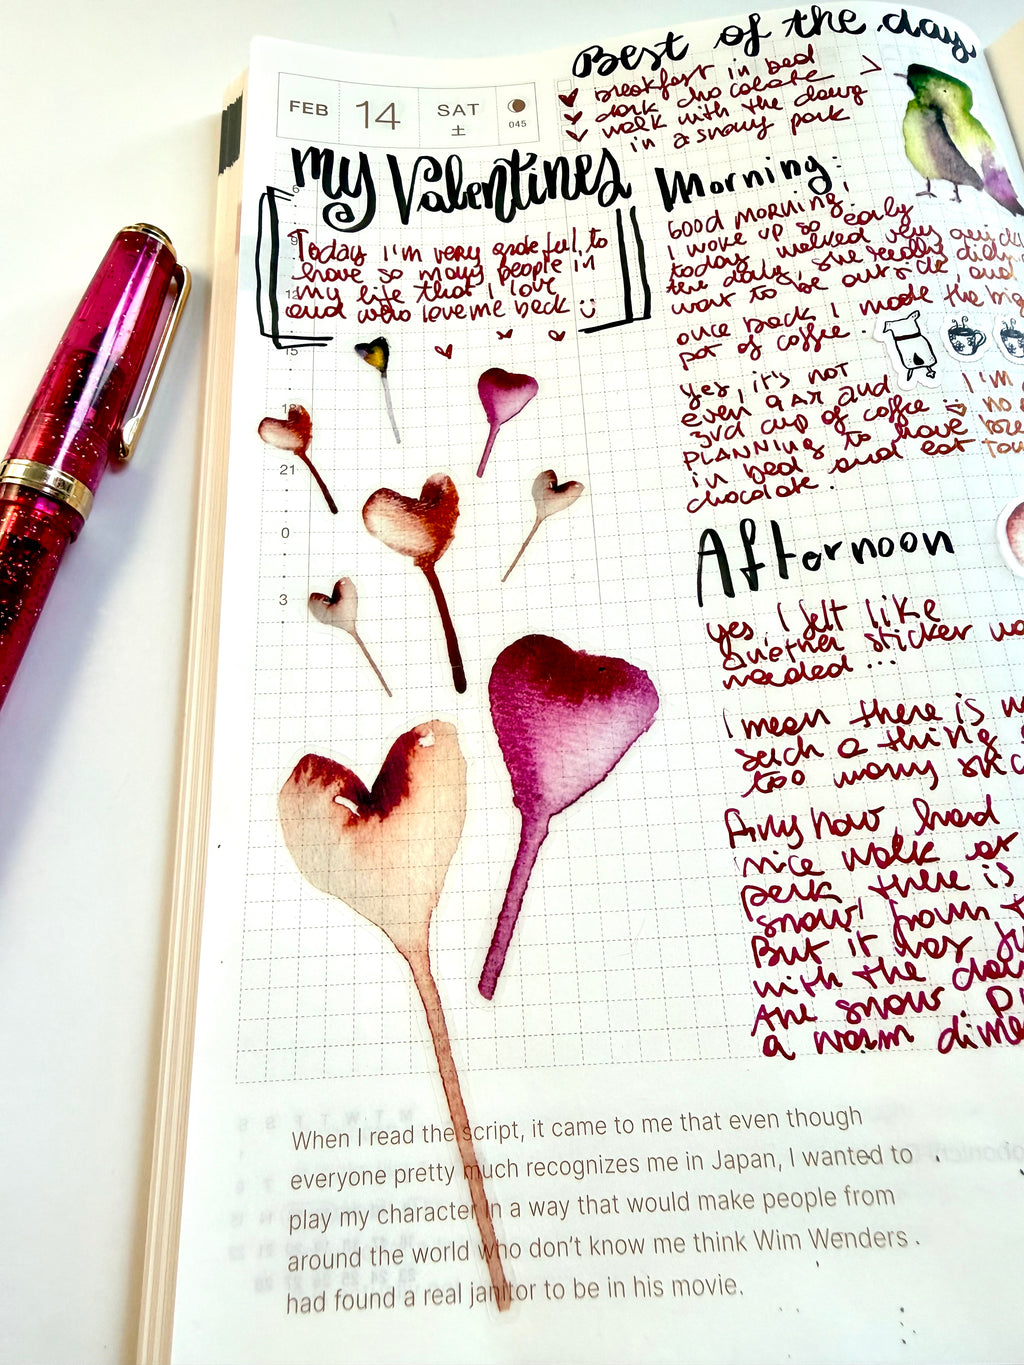 FEB 14 SAT
土 045
Best of the day
breakfast in bed
dark chocolate
walk with the dawg
in a snowy park
My Valentines
Today I'm very grateful to
have so many people in
my life that I love
and who love me back
9
12
15
18
21
0
3
Morning:
Good morning!
I woke up so early
today, walked very
the dawg, she really
want to be outside, and
once back I made the big
pot of coffee.
Yes, it's not
even 9 AM and
3rd cup of coffee I'm
PLANNING to have
in bed and eat
chocolate.
Afternoon
yes, I felt like
another sticker
needed...
I mean there is
such a thing
too many
Anyhow, had
nice walk at
park there is
snow! from
But it was
with the
the snow.
a warm
When I read the script, it came to me that even though
everyone pretty much recognizes me in Japan, I wanted to
play my character in a way that would make people from
around the world who don't know me think Wim Wenders
had found a real janitor to be in his movie.